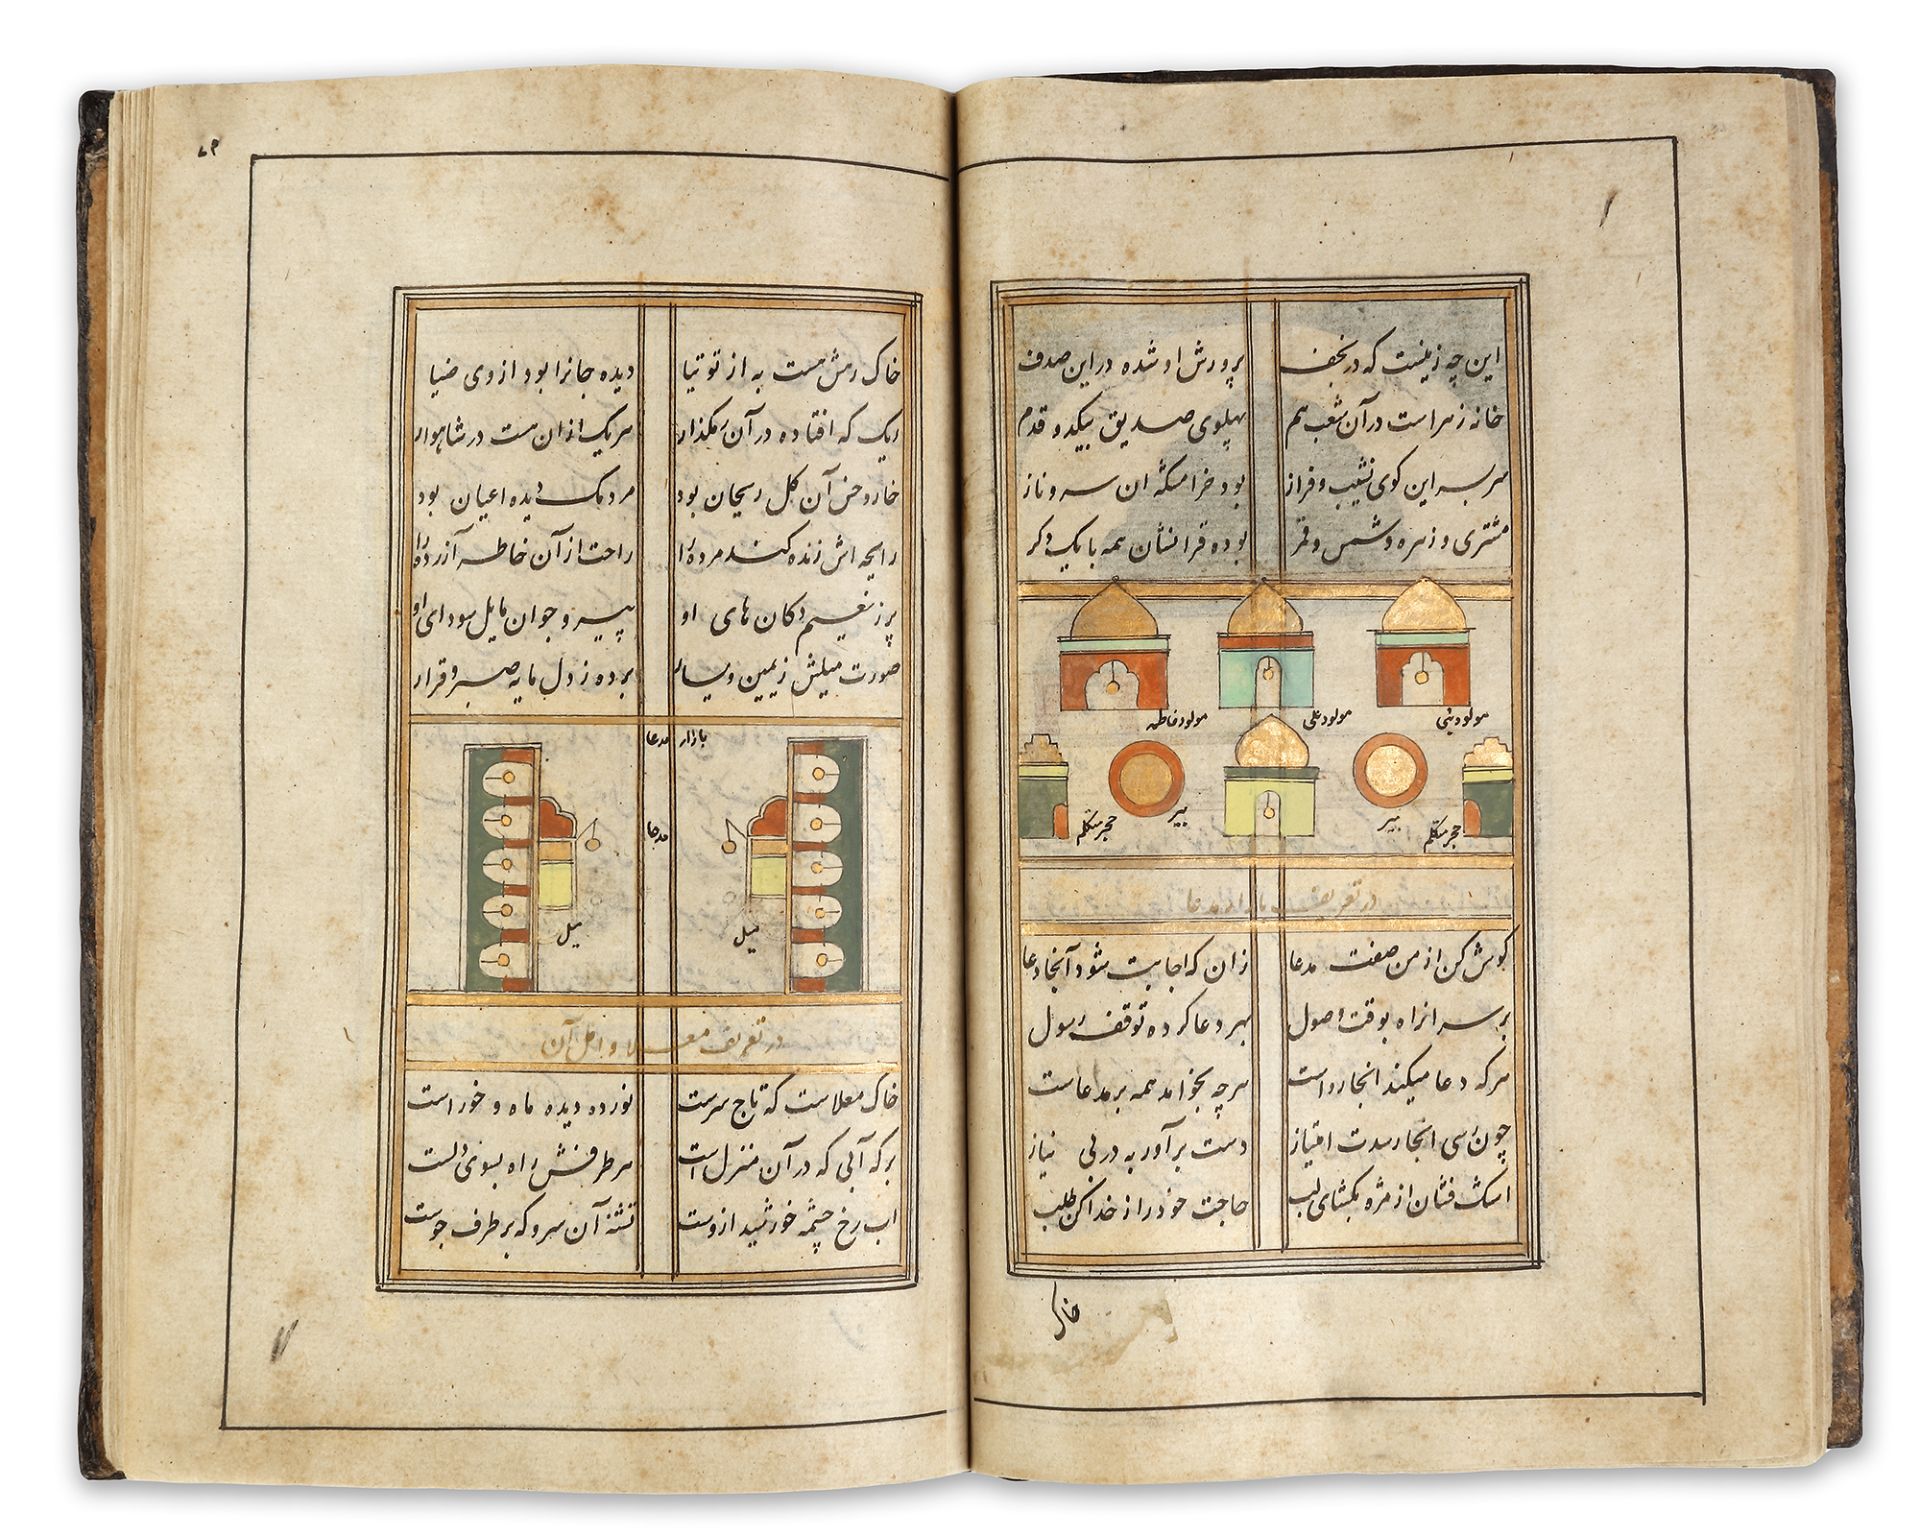 این چه زمینست که در نجف    پرورش او شده در این صدف
خانه زهراست در آن شعب هم    پهلوی صدیق بیکدو قدم
سر بسر این کوی نشیب و فراز    بود خرامنکه ان سرو ناز
مشتری و زهره و شمس و قمر    بوده قرانشان همه با یک دکر
مولود نبی
مولود علی
مولود فاطمه
حجر متکلم
بیر
بیر
حجر متکلم
در تعریف بازار مدعا
کوش کن از من صفت مدعا    زان که اجابت شود آنجا دعا
بر سر انراه بوقت وصول    بهر دعا کرده توقف رسول
هر که دعا میکند انجا رواست    هر چه بخواهد همه بر مدعاست
چون رسی انجا رسدت امتیاز    دست برآور به در بی نیاز
اشک فشان از مژه بکشای لب    حاجت خود را از خدا کن طلب
خاک
۷۹
خاک رهش هست به از توتیا    دیده جانرا بود از وی ضیا
ریک که افتاده در آن رهکذار    هر یک از ان هست در شاهوار
خار و خس آن کل ریحان بود    مردمک دیده اعیان بود
رایحه اش زنده کند مرده را    راحت از آن خاطر آزرده را
پر ز نعیم دکان های او    پیر و جوان مایل سودای او
صورت میلش ز یمین و یسار    برده ز دل مایه صبر و قرار
بازار مدعا
مدعا
میل
میل
در تعریف معلا و اهل آن
خاک معلاست که تاج سرست    نور ده دیده ماه و خور است
برکه آبی که در آن منزل است    هر طرفش راه بسوی دلست
اب رخ چشمه خورشید ازوست    تشنه آن سرو که بر طرف جوست